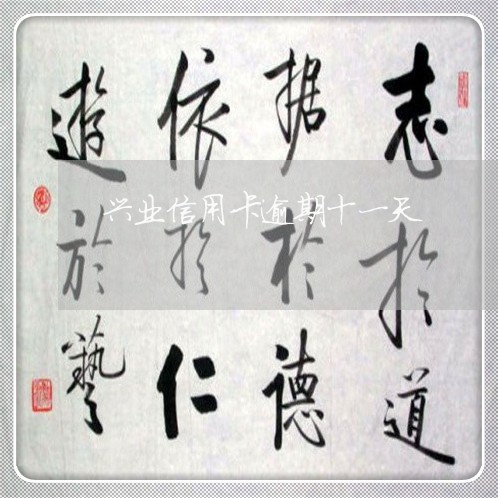 志於道
据於德
依於仁
遊於藝
兴业信用卡逾期十一天